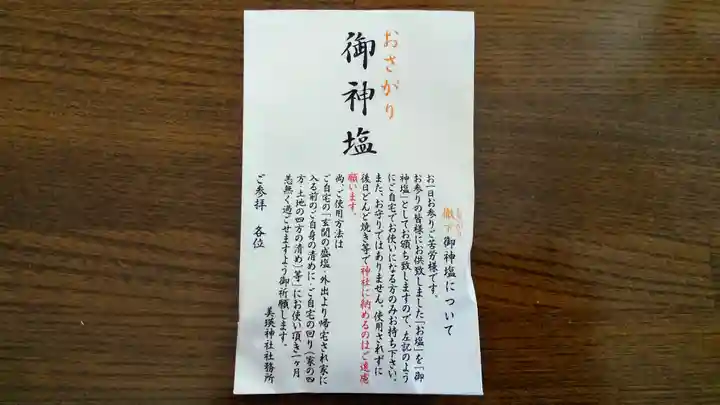 おさがり
御神塩
おさがり
撤下御神塩について
お一日お参りご苦労様です。
お参りの皆様にお供致しました「お塩」を「御
神塩」としてお頒ち致しますので、左記のよう
にご自宅でお使いになる方のみお持ち下さい。
また、お守りではありません。使用されずに
後日どんど焼き等で神社に納めるのはご遠慮
願います。
尚、ご使用方法は
ご自宅の「玄関の盛塩・外出より帰宅され家に
入る前のご自身の清めに・ご自宅の回り(家の四
方・土地の四方の清め)等」にお使い頂き一ヶ月
恙無く過ごせますよう御祈願します。
美瑛神社社務所
ご参拝 各位